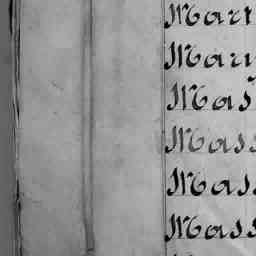 Mart
Mary
Mas
Mass
Mass
Mass